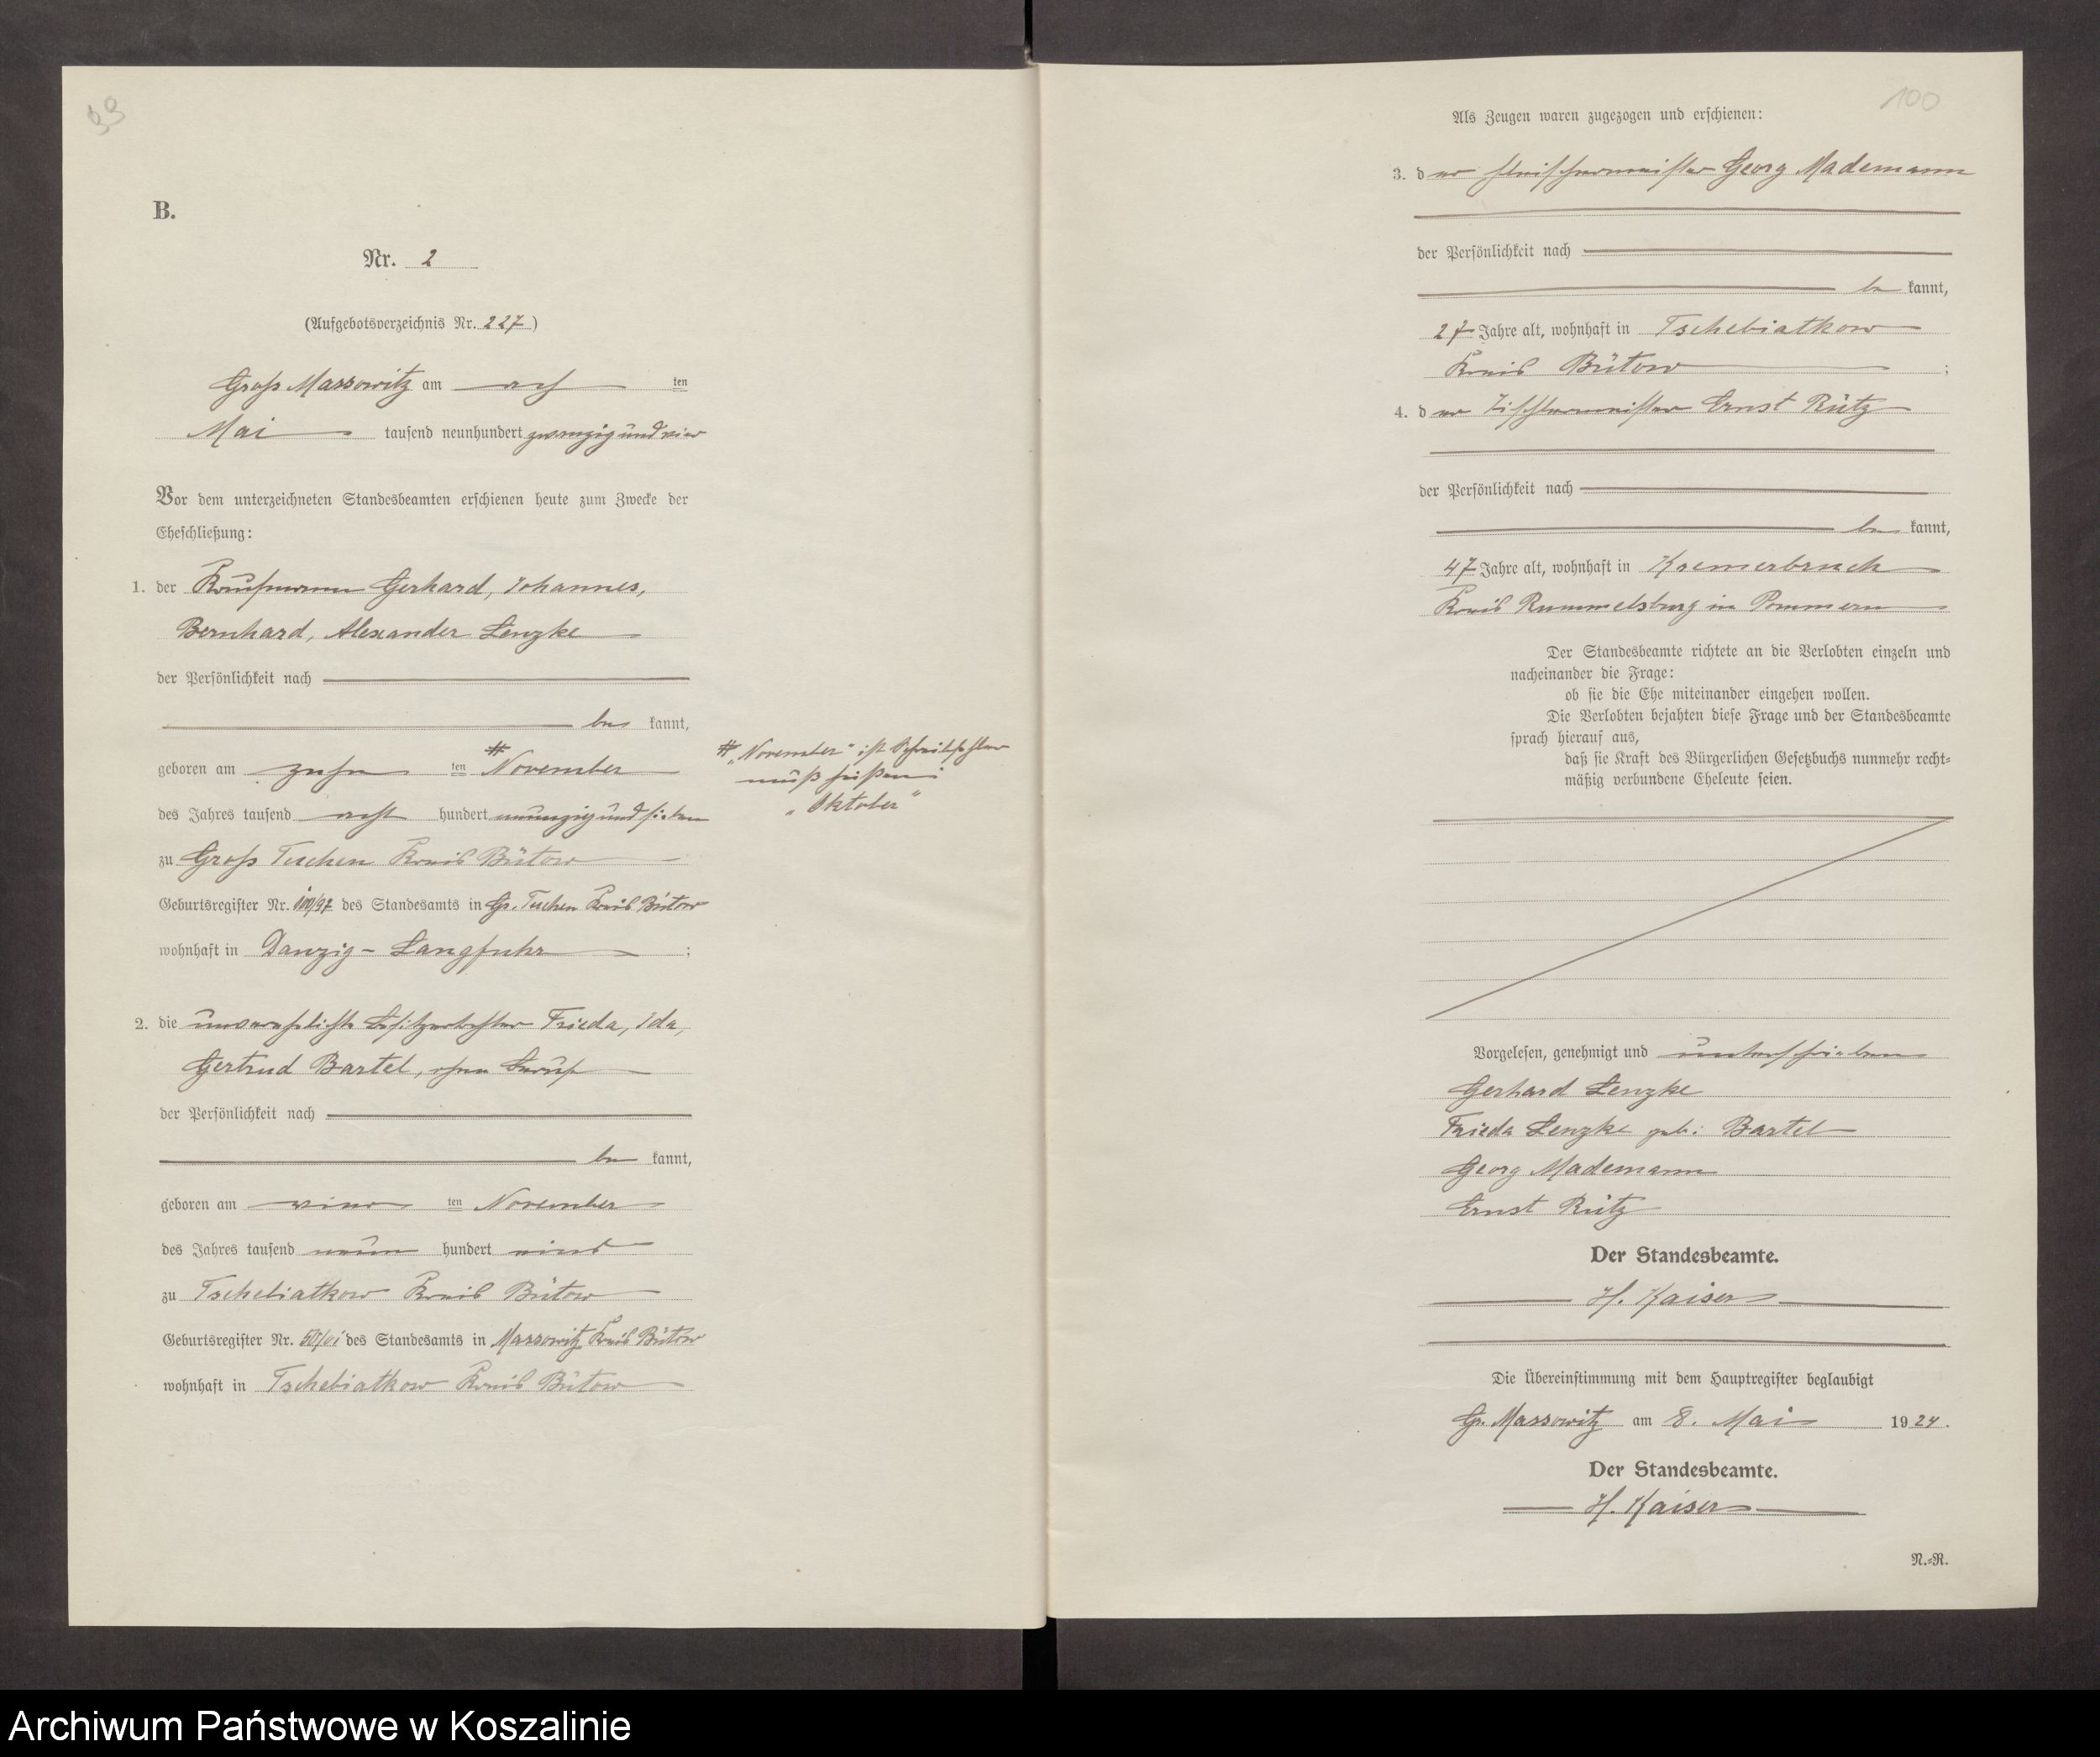 93
B.
Nr. 2
(Aufgebotsverzeichnis Nr. 227)
Groß Massowitz am ach ten
Mai tausend neunhundert zwanzig und vier
Vor dem unterzeichneten Standesbeamten erschienen heute zum Zwecke der
Eheschließung:
1. der Kaufmann Gerhard, Johannes,
Bernhard, Alexander Lenzke
der Persönlichkeit nach
be kannt,
geboren am zehn ten # November
des Jahres tausend acht hundert neunzig und sieben
zu Groß Tuchen Kreis Bütow
Geburtsregister Nr. 100/97 des Standesamts in Gr. Tuchen Kreis Bütow
wohnhaft in Danzig-Langfuhr ;
# „November“ ist Schreibfehler
muß heißen:
„Oktober“
2. die unverehelichte Besitzertochter Frieda, Ida,
Gertrud Bartel, ohne Beruf
der Persönlichkeit nach
be kannt,
geboren am vier ten November
des Jahres tausend neun hundert eins
zu Tschebiatkow Kreis Bütow
Geburtsregister Nr. 50/01 des Standesamts in Massowitz Kreis Bütow
wohnhaft in Tschebiatkow Kreis Bütow
100
Als Zeugen waren zugezogen und erschienen:
3. der Fleischermeister Georg Mademann
der Persönlichkeit nach
be kannt,
27 Jahre alt, wohnhaft in Tschebiatkow
Kreis Bütow ;
4. der Tischlermeister Ernst Rütz
der Persönlichkeit nach
be kannt,
47 Jahre alt, wohnhaft in Kremerbruch
Kreis Rummelsburg in Pommern
Der Standesbeamte richtete an die Verlobten einzeln und
nacheinander die Frage:
ob sie die Ehe miteinander eingehen wollen.
Die Verlobten bejahten diese Frage und der Standesbeamte
sprach hierauf aus,
daß sie Kraft des Bürgerlichen Gesetzbuchs nunmehr recht-
mäßig verbundene Eheleute seien.
Vorgelesen, genehmigt und unterschrieben
Gerhard Lenzke
Frieda Lenzke geb: Bartel
Georg Mademann
Ernst Rütz
Der Standesbeamte.
H. Kaiser
Die Übereinstimmung mit dem Hauptregister beglaubigt
Gr. Massowitz am 8. Mai 1924.
Der Standesbeamte.
H. Kaiser
N.-R.
Archiwum Państwowe w Koszalinie